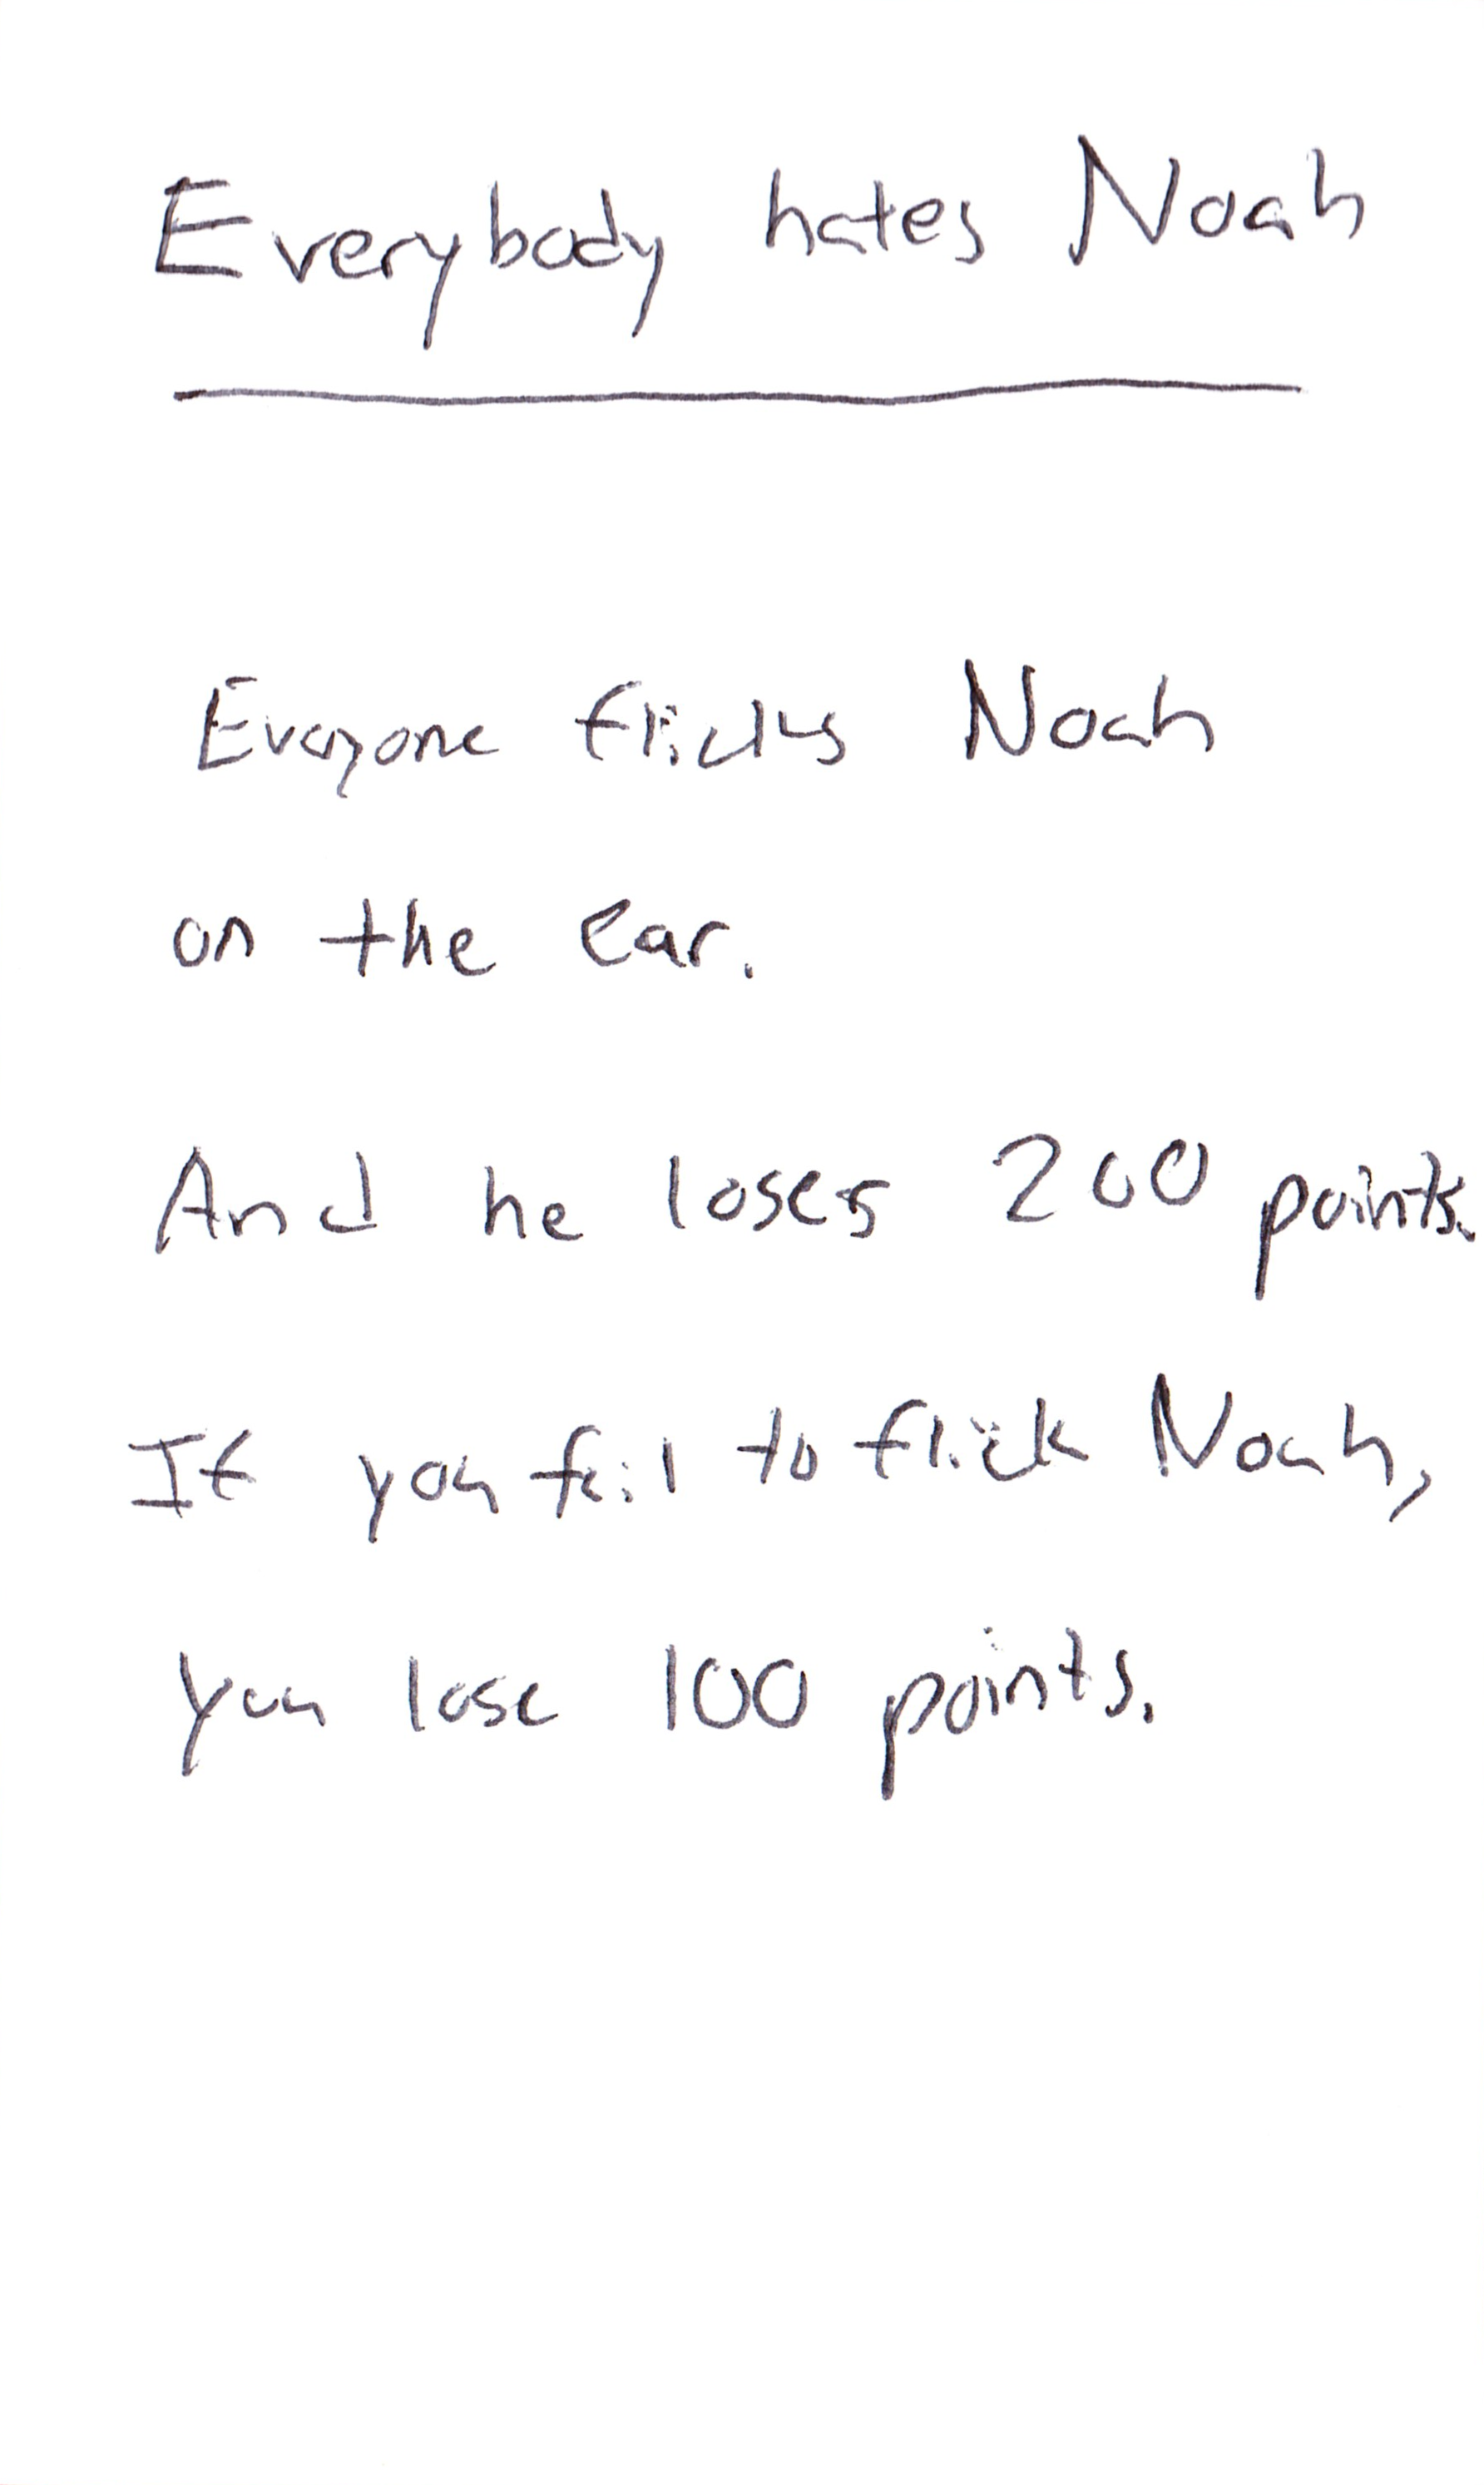 Everybody hates Noah
Everyone flicks Noah
on the ear.
And he loses 200 points.
If you fail to flick Noah,
you lose 100 points.